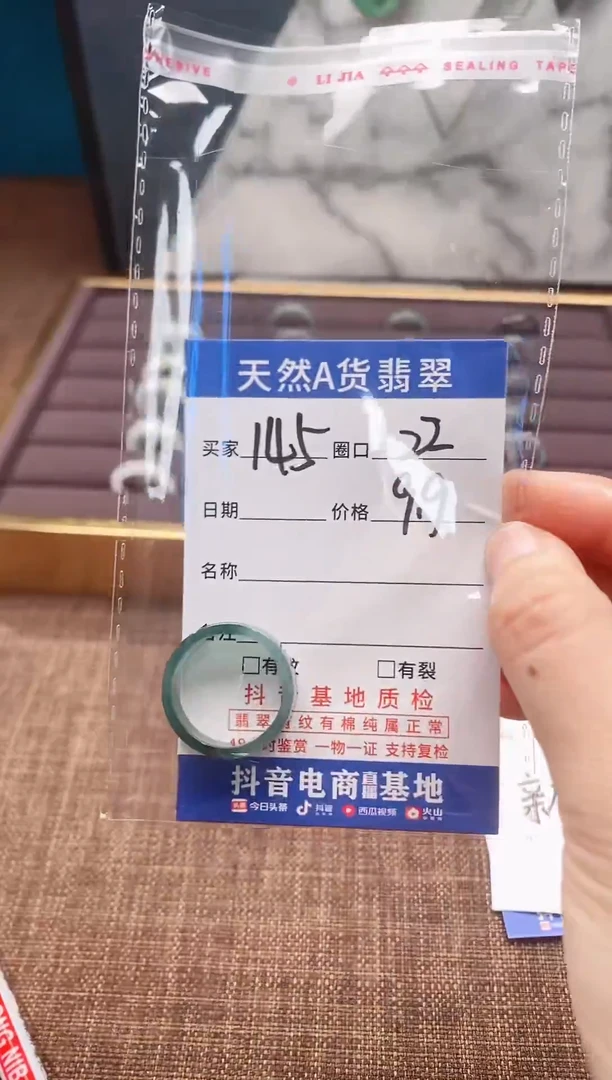 HESIVE LI JIA SEALING TAPE
天然A货翡翠
买家 145 圈口 22
日期 价格 99
名称
备注
□有纹 □有裂
抖音基地质检
翡翠有纹有棉纯属正常
48小时鉴赏 一物一证 支持复检
抖音电商直播基地
头条 今日头条 抖音 西瓜视频 火山
新
ONG NIB